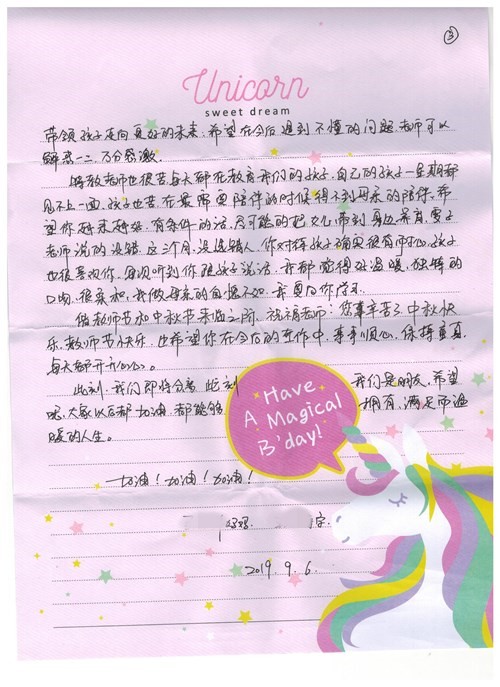 ③
Unicorn
sweet dream
带领孩子走向更好的未来，希望在今后遇到不懂的问题，老师可以
解惑一二，万分感激。
老师也很苦每天都在教育我们的孩子，自己的孩子一星期都
见不上一面，孩子也苦在最需要陪伴的时候得不到母亲的陪伴，希
望你越来越好，有条件的话，尽可能的把女儿带到身边养育，
老师说的没错，这三个月，没选错人，你对待孩子确实很有耐心，孩子
也很喜欢你，每次听到你跟孩子说话，我都觉得好温暖，独特的
口吻，很柔和，我做母亲的自愧不如，我要向你学习。
值教师节和中秋节来临之际，祝福老师：您辛苦了，中秋快
乐，教师节快乐，也希望你在今后的工作中，事事顺心，保持童真，
每天都开开心心。
此刻，我们即将分离，此刻 我们是朋友，希望
大家以后都加油，都能够 拥有，满足而温
暖的人生。
Have
A Magical
B'day!
加油！加油！加油！
妈妈 字
2019. 9. 6.